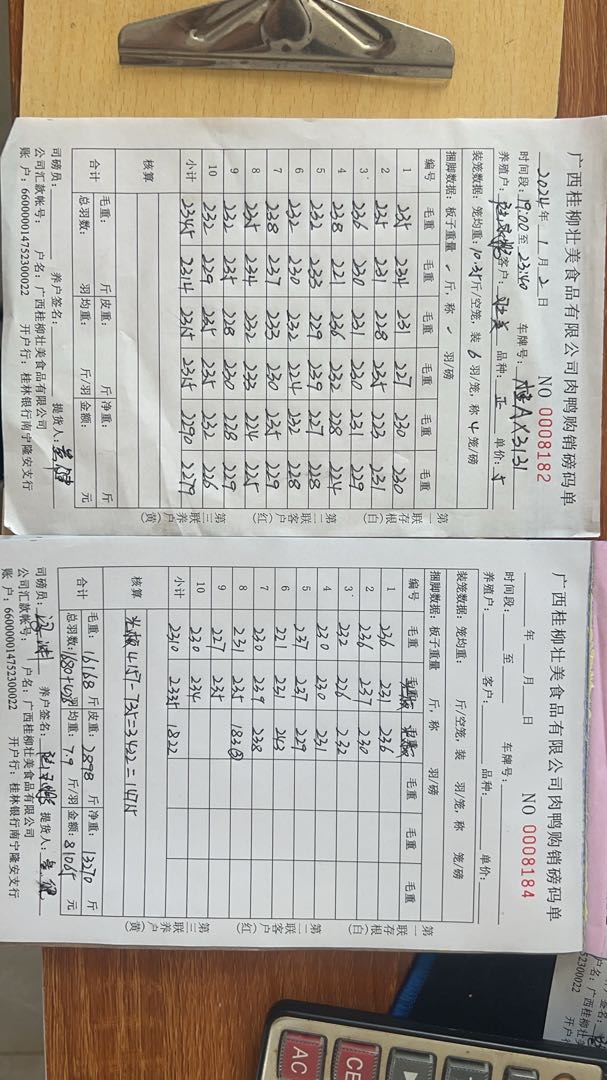 广西桂柳壮美食品有限公司肉鸭购销磅码单
2024年1月2日 NO 0008182
时间段：19:00至23:40 车牌号：A X3131
养殖户： 客户： 品种：正 单价：5
装笼数据：笼均重：10.35斤/空笼，装6羽/笼，称4笼/磅
捆脚数据：板子重量 斤，称 羽/磅
编号 毛重 毛重 毛重 毛重 毛重 毛重
1 235 234 231 227 230 230
2 235 231 228 235 223 231
3 236 230 231 230 231 229
4 238 221 236 232 228 224
5 232 233 229 239 227 228
6 232 230 232 224 232 228
7 238 237 233 230 235 229
8 235 234 232 233 224 225
9 232 235 228 230 228 229
10 232 229 235 235 232 226
小计 2345 2314 2315 2315 2290 2279
核算
合计 毛重： 斤 皮重： 斤 净重： 斤
总羽数： 羽均重： 斤/羽 金额： 元
司磅员： 养户签名： 提货人：
公司汇款帐号： 户名：广西桂柳壮美食品有限公司
账户：660000014752300022 开户行：桂林银行南宁隆安支行
第一联存根(白)
第二联客户(红)
第三联养户(黄)
广西桂柳壮美食品有限公司肉鸭购销磅码单
年 月 日 NO 0008184
时间段： 至 车牌号：
养殖户： 客户： 品种： 单价：
装笼数据：笼均重： 斤/空笼，装 羽/笼，称 笼/磅
捆脚数据：板子重量 斤，称 羽/磅
编号 毛重 毛重 毛重 毛重 毛重 毛重
1 236 231 236
2 236 237 230
3 232 226 232
4 230 230 231
5 237 237 229
6 221 231 243
7 220 239 238
8 231 235 183
9 227 235
10 220 234
小计 2310 2335 1822
核算 4157-735=3422=
合计 毛重：16168斤 皮重：2898斤 净重：13270斤
总羽数：1680+ 羽均重：7.9斤/羽 金额：81065元
司磅员： 养户签名： 提货人：
公司汇款帐号： 户名：广西桂柳壮美食品有限公司
账户：660000014752300022 开户行：桂林银行南宁隆安支行
第一联存根(白)
第二联客户(红)
第三联养户(黄)
52300022
CE
AC